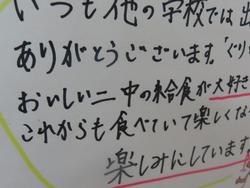 いつも他の学校では出
ありがとうございます。「ぐり
おいしい二中の給食が大好き
これからも食べていて楽しくな
楽しみにしています